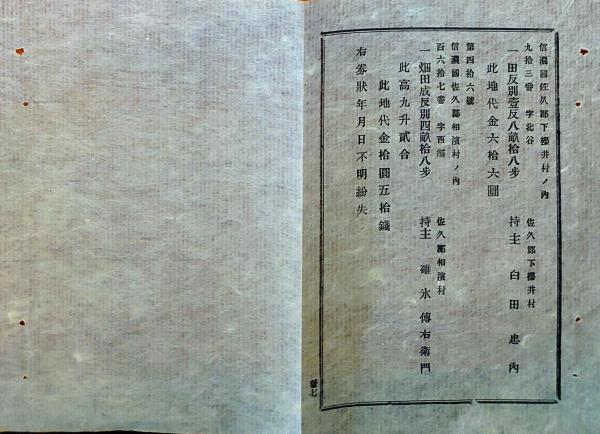 信濃國佐久郡下櫻井村ノ內
九拾三番 字北谷 佐久郡下櫻井村
一田反別壹反八畝拾八步 持主 臼田忠內
此地代金六拾六圓
第四拾六號
信濃國佐久郡相濱村ノ內
百六拾七番 字西 佐久郡相濱村
一畑田成反別四畝拾八步 持主 碓氷傳右衛門
此高九升貳合
此地代金拾圓五拾錢
右券狀年月日不明紛失
七